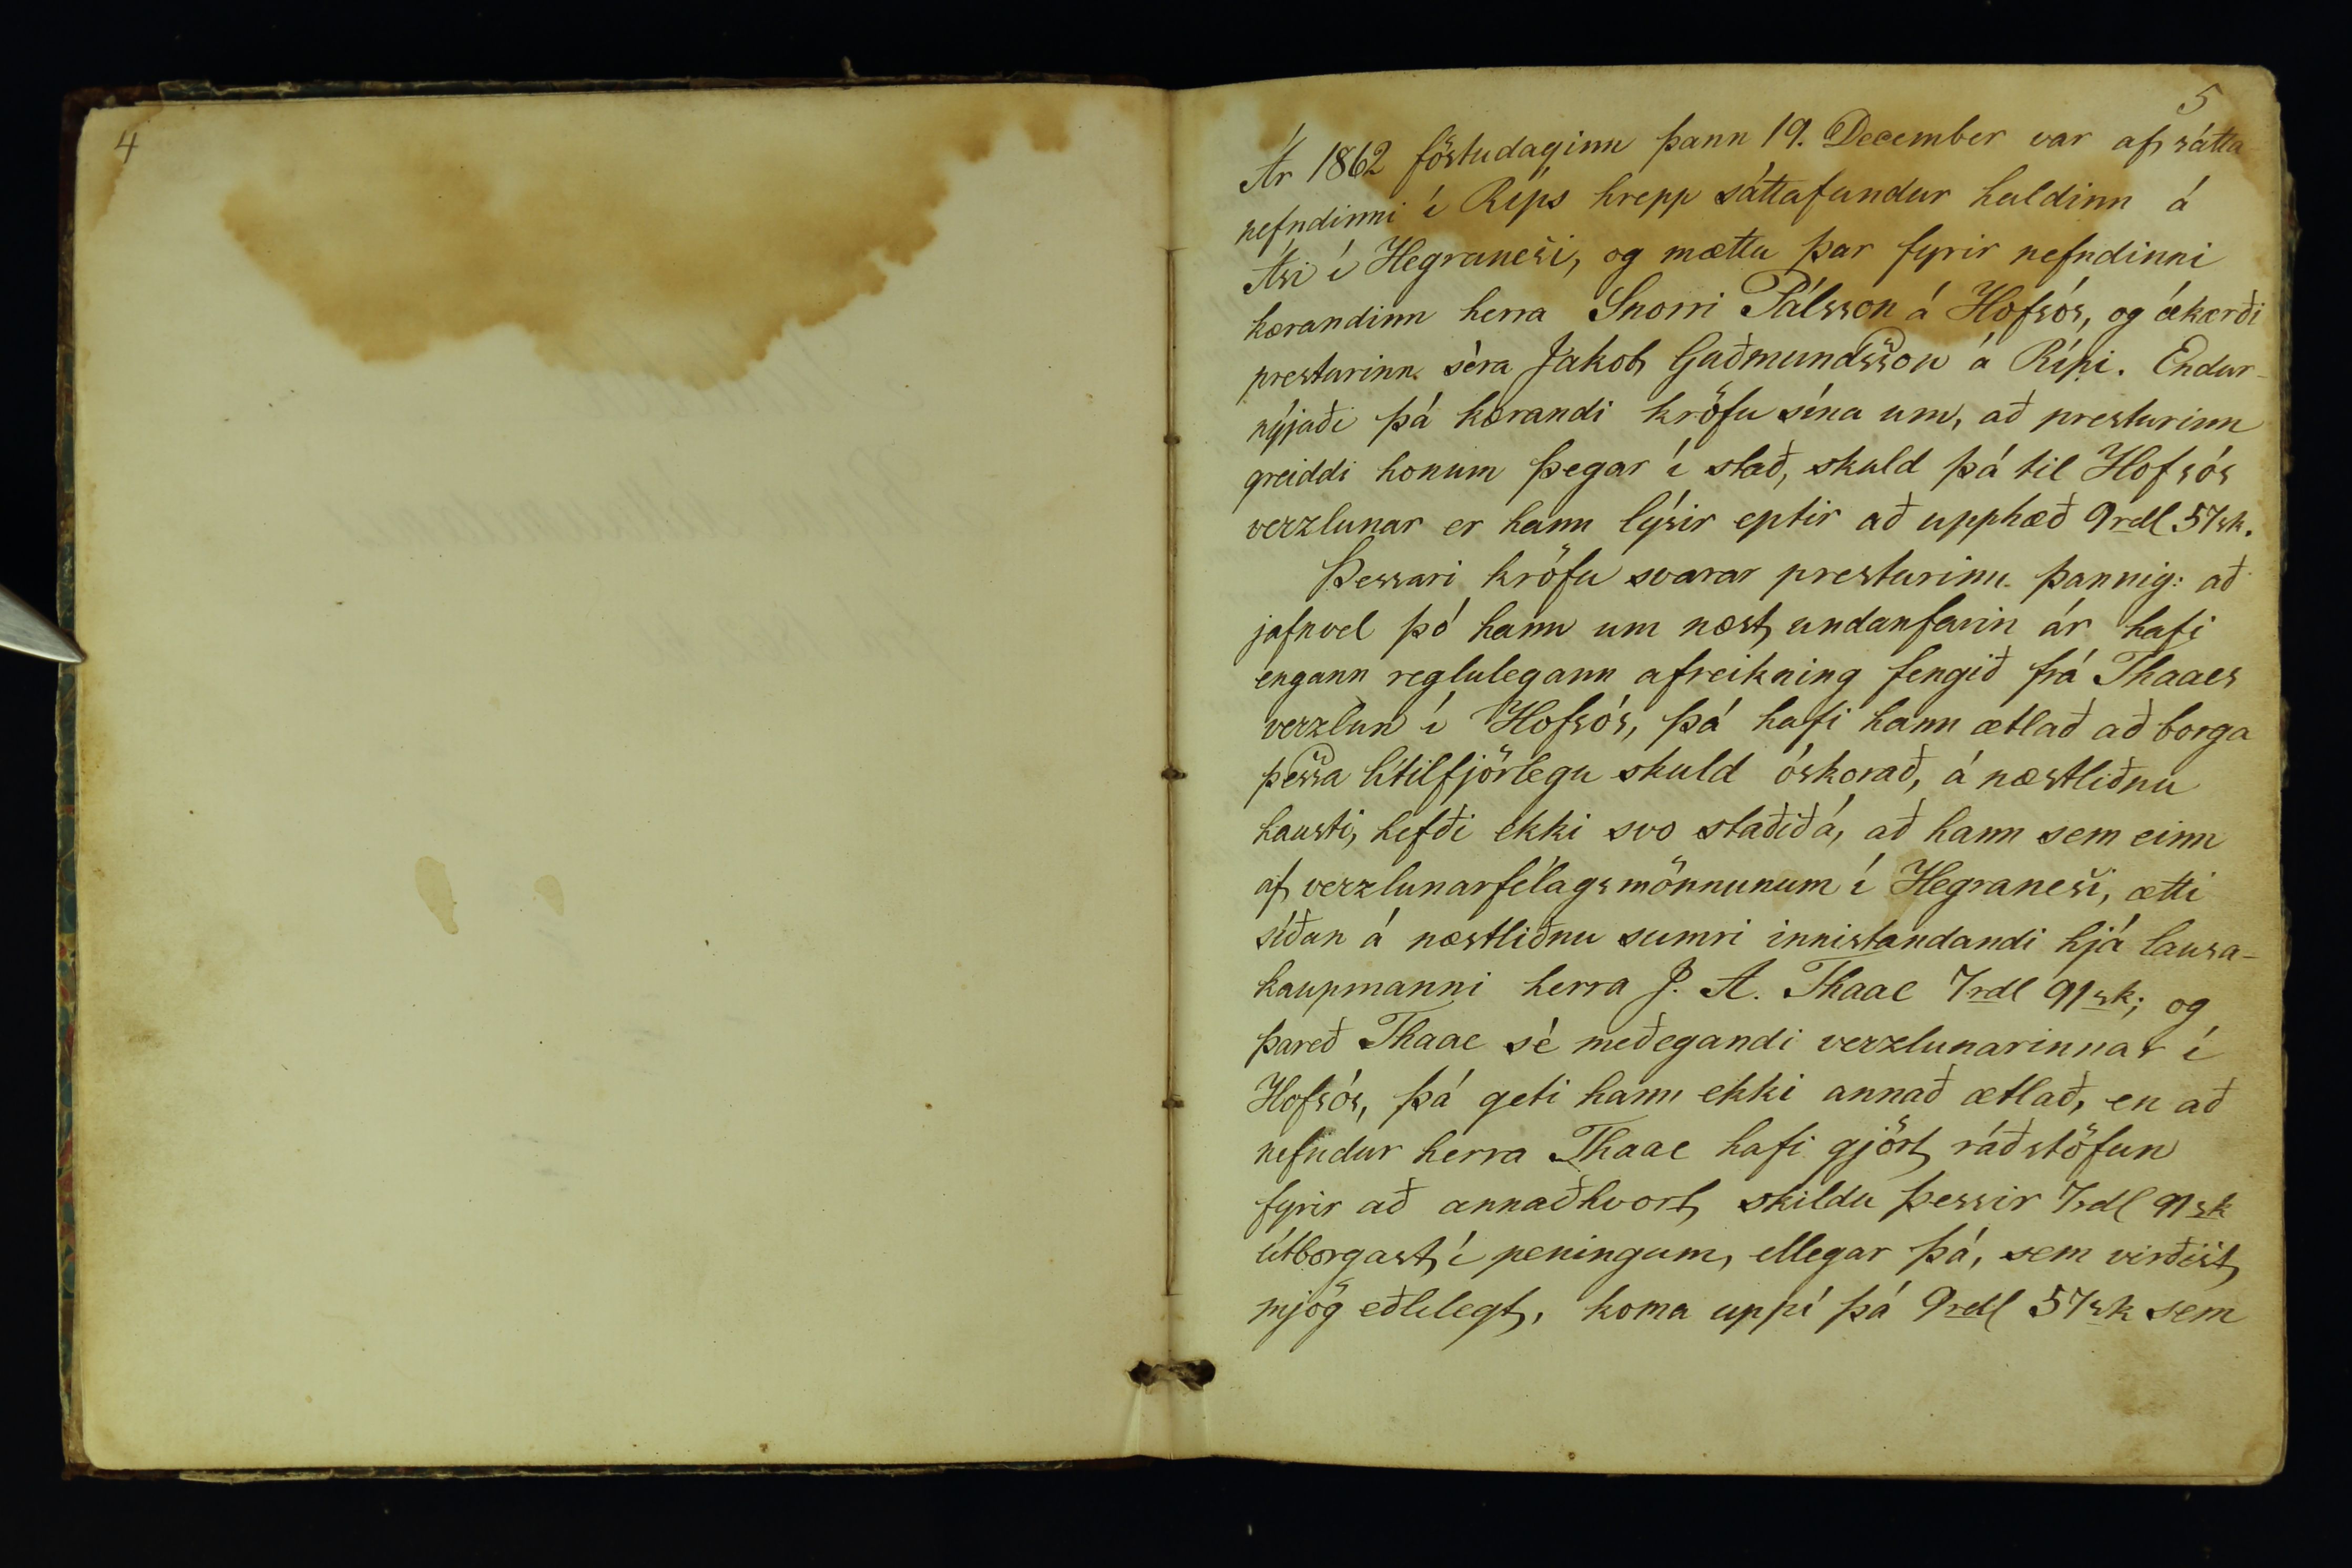 4
5
Ár 1862 föstudaginn þann 19. December var af sátta
nefndinni í Ríps hrepp sáttafundur haldinn á
Ási í Hegranesi, og mættu þar fyrir nefndinni
kærandinn herra Snorri Pálsson á Hofsós, og ákærði
presturinn séra Jakob Guðmundsson á Rípi. Endur-
nýjaði þá kærandi kröfu sína um, að presturinn
greiddi honum þegar í stað, skuld þá til Hofsós
verzlunar er hann lýsir eptir að upphæð 9rdl 57sk.
Þessari kröfu svarar presturinn þannig: að
jafnvel þó hann um næst undanfarin ár hafi
engann reglulegann afreikning fengið frá Thaaes
verzlun í Hofsós, þá hafi hann ætlað að borga
þessa lítilfjörlegu skuld óskorað, á næstliðnu
hausti, hefði ekki svo staðið á, að hann sem einn
af verzlunarfélagsmönnunum í Hegranesi, ætti
síðan á næstliðnu sumri innistandandi hjá lausa-
kaupmanni herra J. A. Thaae 7rdl 91sk; og
þareð Thaae sé meðegandi verzlunarinnar í
Hofsós, þá geti hann ekki annað ætlað, en að
nefndur herra Thaae hafi gjört ráðstöfun
fyrir að annaðhvort skildu þessir 7rdl 91sk
útborgast í peningum, ellegar þá, sem virðist
mjög eðlilegt, koma uppí þá 9rdl 57sk sem